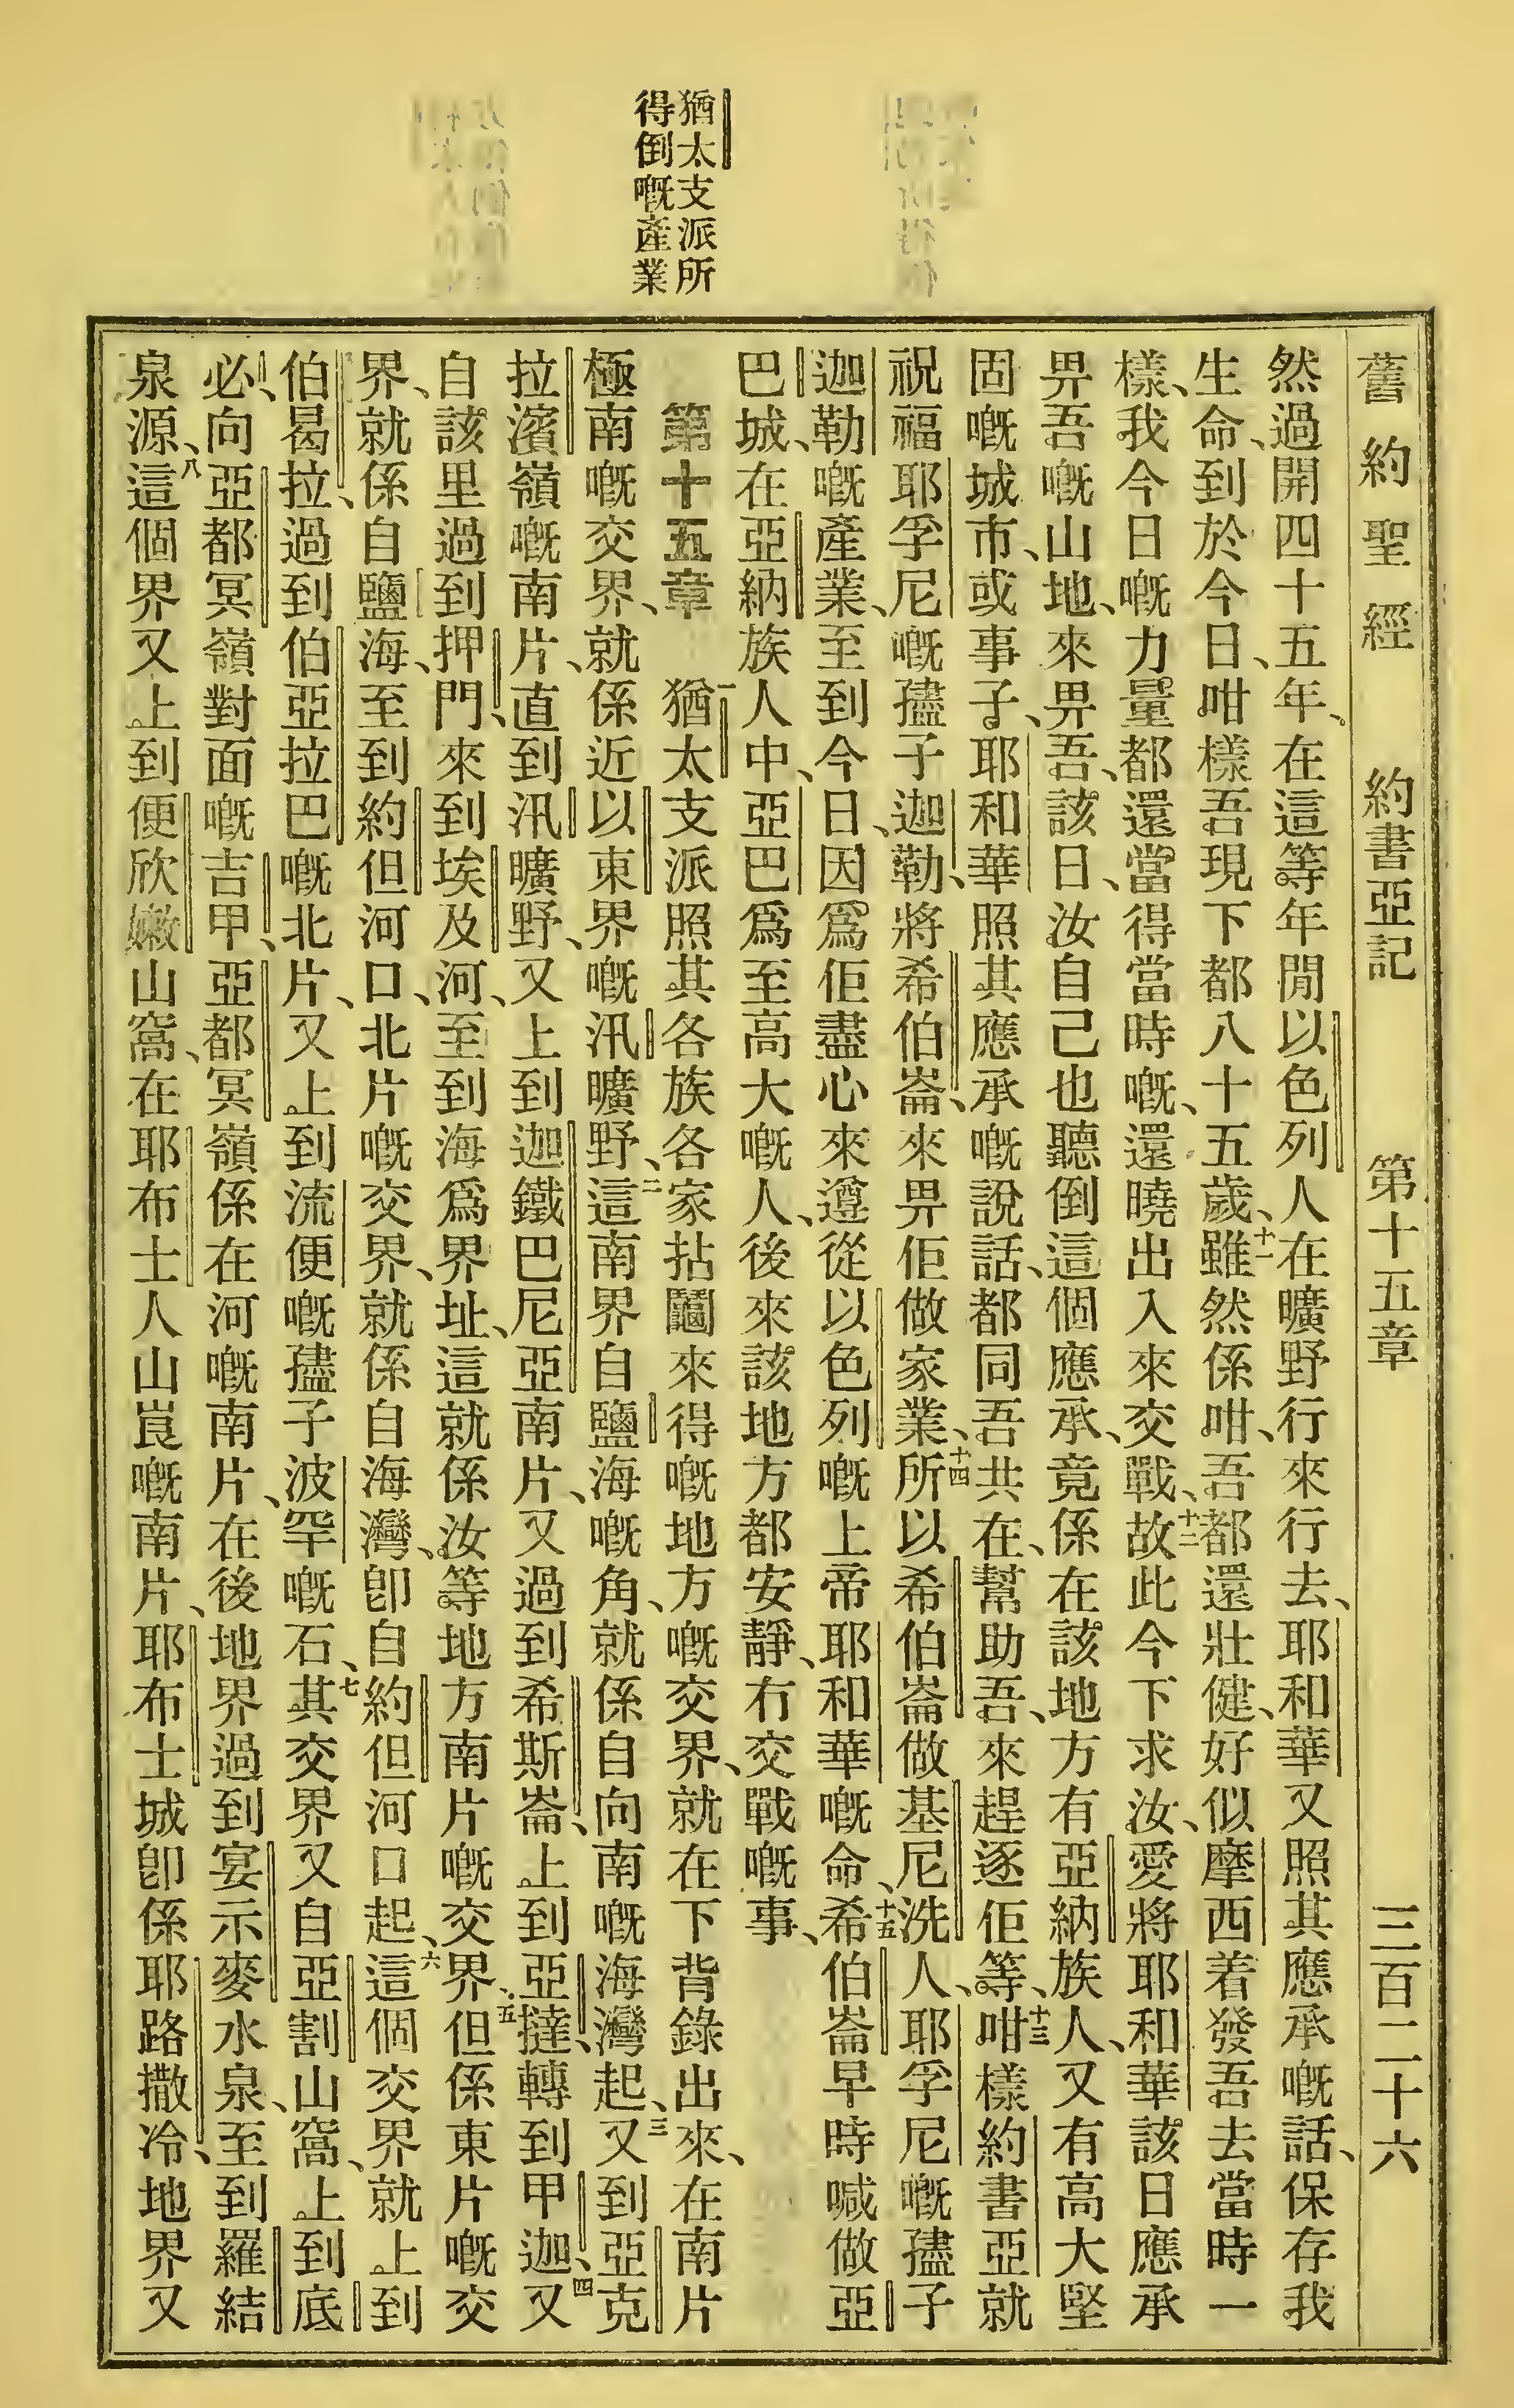 猶太支派所
得倒嘅產業
舊約聖經 約書亞記 第十五章 三百二十六
然過開四十五年、在這等年閒以色列人在曠野行來行去、耶和華又照其應承嘅話、保存我
生命、到於今日、咁樣吾現下都八十五歲、十一雖然係咁、吾都還壯健、好似摩西着發吾去當時一
樣、我今日嘅力量都還當得當時嘅、還曉出入來交戰、十二故此今下求汝、愛將耶和華該日應承
畀吾嘅山地、來畀吾、該日、汝自己也聽倒這個應承、竟係在該地方有亞納族人、又有高大堅
固嘅城市、或事子、耶和華照其應承嘅說話、都同吾共在、幫助吾、來趕逐佢等、十三咁樣約書亞就
祝福耶孚尼嘅孻子迦勒、將希伯崙、來畀佢做家業、十四所以希伯崙做基尼洗人、耶孚尼嘅孻子
迦勒嘅產業、至到今日、因爲佢盡心來遵從以色列嘅上帝耶和華嘅命、十五希伯崙早時喊做亞
巴城、在亞納族人中、亞巴爲至高大嘅人、後來該地方都安靜、冇交戰嘅事、
第十五章 一猶太支派照其各族各家拈鬮來得嘅地方嘅交界、就在下背錄出來、在南片
極南嘅交界、就係近以東界嘅汛曠野、二這南界自鹽海嘅角、就係自向南嘅海灣起、三又到亞克
拉濱嶺嘅南片、直到汛曠野、又上到迦鐵巴尼亞南片、又過到希斯崙、上到亞撻、轉到甲迦、四又
自該里過到押門、來到埃及河、至到海爲界址、這就係汝等地方南片嘅交界、五但係東片嘅交
界、就係自鹽海、至到約但河口、北片嘅交界、就係自海灣、卽自約但河口起、六這個交界就上到
伯曷拉、過到伯亞拉巴嘅北片、又上到流便嘅孻子波罕嘅石、七其交界又自亞割山窩、上到底
必、向亞都冥嶺對面嘅吉甲、亞都冥嶺係在河嘅南片、在後地界過到宴示麥水泉、至到羅結
泉源、八這個界又上到便欣嫩山窩、在耶布士人山崀嘅南片、耶布士城卽係耶路撒冷、地界又